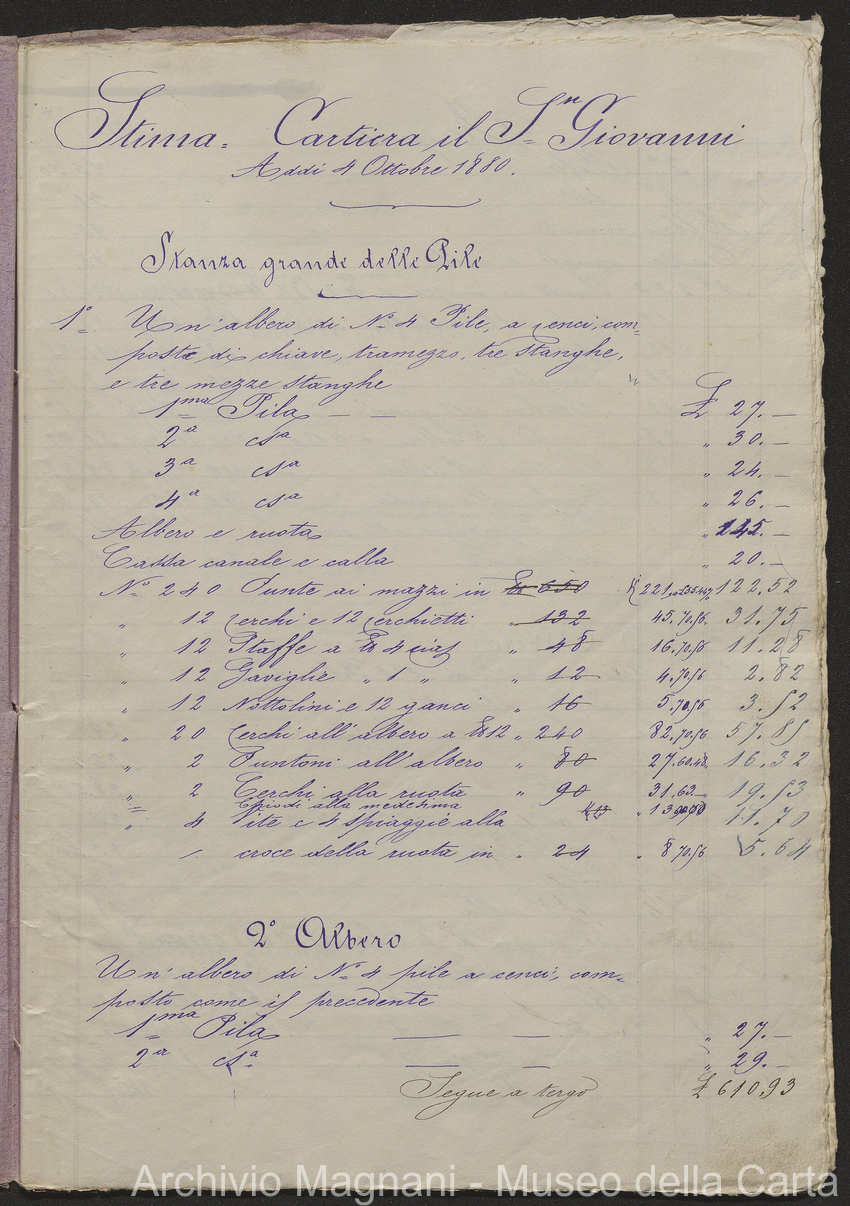 Stima = Cartiera il S.n Giovanni
Addi 4 Ottobre 1880.
Stanza grande delle Pile
1° Un'albero di N.° 4 Pile, a cenci, com=
poste di chiave, tramezzo, tre stanghe,
e tre mezze stanghe
1ma Pila — — £ 27. —
2a csa " 30. —
3a csa " 24. —
4a csa " 26. —
Albero e ruota " 145. —
Cassa canale e calla " 20. —
N.° 240 Punte ai mazzi in 650 K 221 122.52
" 12 Cerchi e 12 Cerchietti " 132 45.70.56 31.75
" 12 Staffe a 4 " 48 16.70.56 11.28
" 12 Caviglie " 1 " " 12 4.70.56 2.82
" 12 Nottolini e 12 ganci " 16 5.70.56 3.52
" 20 Cerchi all'albero a 12 " 240 82.70.56 57.85
" 2 Puntoni all'albero " 80 27.60.48 16.32
" 2 Cerchi alla ruota " 90 31.63 19.53
" = Chiodi alla medesima " 13 11.70
" 4 Vite e 4 spiaggie alla
croce della ruota in " 24 " 8.70.56 5.64
2° Albero
Un'albero di N.° 4 pile a cenci, com=
posto come il precedente
1ma Pila — — " 27. —
2a Csa — — " 29. —
Segue a tergo £ 610.93
Archivio Magnani - Museo della Carta